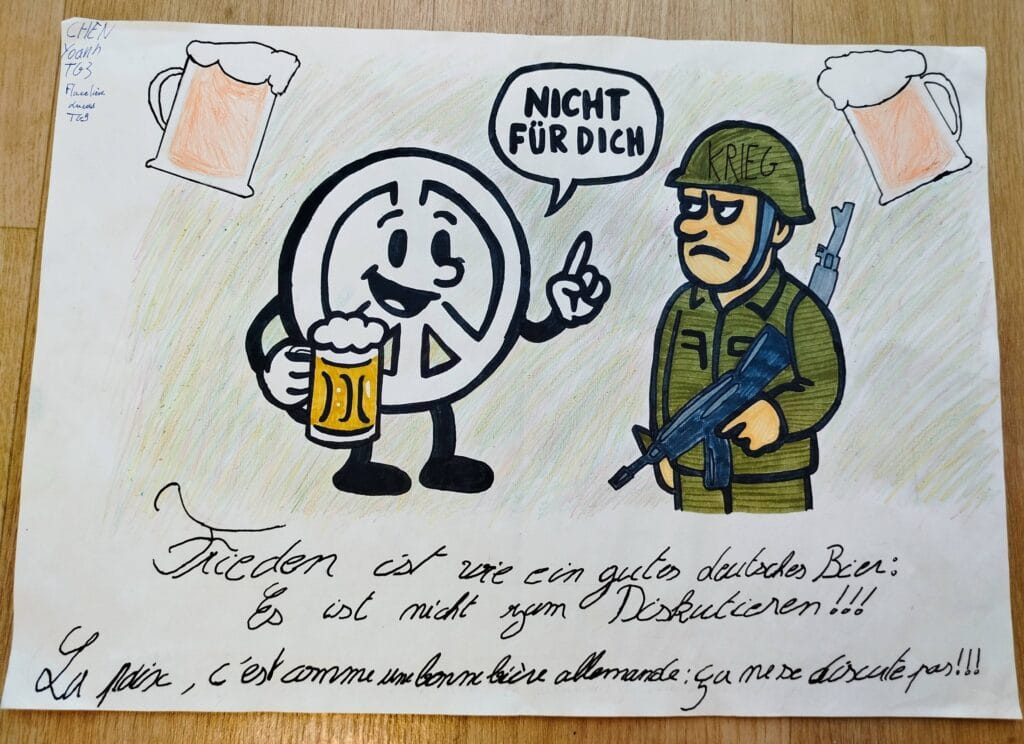 CHEN
Yoann
TG3
Lucas
TG9
NICHT
FÜR DICH
KRIEG
Frieden ist wie ein gutes deutsches Bier:
Es ist nicht zum Diskutieren!!!
La paix, c'est comme une bonne bière allemande: ça ne se discute pas!!!